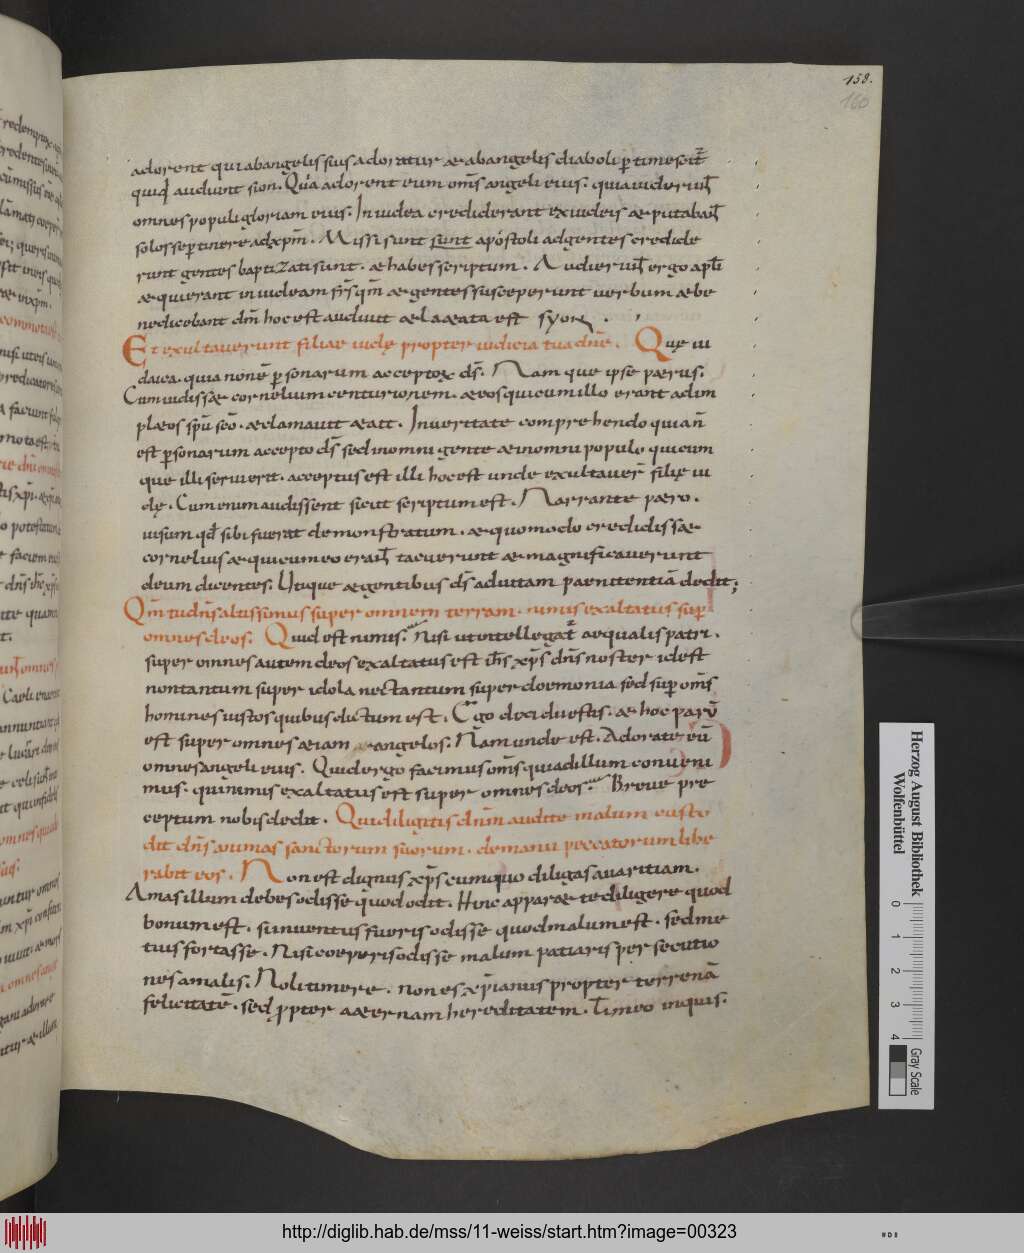 158.
160
adorent qui abangelis sius adoratur & abangelis diaboli ꝑtimescit̄
quid audiunt sion. Quia adorent eum om̄s angeli eius. quia uiderun̄
omnes populi gloriam eius. In iudea crediderant ex iudeis & putaban̄
solos se pertinere ad xp̄m. Missi sunt sunt apostoli ad gentes credide
runt gentes baptizati sunt. & habes scriptum. Audierun̄ ergo apl̄i
& qui erant in iudeam fr̄s qm̄ & gentes susceperunt uerbum & be
nedicebant dm̄ hoc est audiuit & laetata est syon.
Et exultauerunt filiae iudę propter iudicia tua dn̄e. Quę iu
daica. quia non ē ꝑsonarum acceptor ds̄. Nam que ipse petrus.
Cum uidiss& cornelium centurionem. & eos qui cum illo erant adim
pletos sp̄u sc̄o. & clamauit & ait. In ueritate comprehendo quia n̄
est ꝑsonarum accepto ds̄ sed in omni gente & in omni populo quicum
que illi seruierit. acceptus est illi hoc est unde exultauer̄ filię iu
dę. Cum enim audissent sicut scriptum est. Narrante petro.
uisum qd̄ sibi fuerat demonstratum. & quomodo credidiss&
cornelius & qui cum eo eran̄ tacuerunt & magnificauerunt
deum dicentes. Utique & gentibus ds̄ ad uitam paenitentiā dedit;
Qm̄ tu dn̄s altissimus super omnem terram. nimis exaltatus suꝑ
omnes deos. Quid est nimis. Nisi ut intellegat̄ aequalis patri.
super omnes autem deos exaltatus est ih̄s xp̄s dn̄s noster id est
non tantum super idola nec tantum super doemonia sed suꝑ om̄s
homines iustos quibus dictum est. Ego dixi dii estis. & hoc parū
est super omnes etiam & angelos. Nam unde est. Adorate eū
omnes angeli eius. Quid ergo facimus om̄s qui ad illum conueni
mus. qui nimis exaltatus est super omnes deos. Breue pre
ceptum nobis dedit. Qui diligitis dn̄m audite malum custo
dit dn̄s animas sanctorum suorum. de manu peccatorum libe
rabit eos. Non est dignus xp̄s cum quo diligas auaritiam.
Amas illum debes odisse quod odit. Hinc appar& te diligere quod
bonum est. si inuentus fueris odisse quod malum est. sed me
tuis fortasse. Nisi coeperis odisse malum patiaris persecutio
nes a malis. Noli timere. non es xp̄ianus propter terrenā
felicitatē. sed ꝓpter aeternam hereditatem. Timeo inquis.
Herzog August Bibliothek
Wolfenbüttel
0 1 2 3 4
Gray Scale
http://diglib.hab.de/mss/11-weiss/start.htm?image=00323